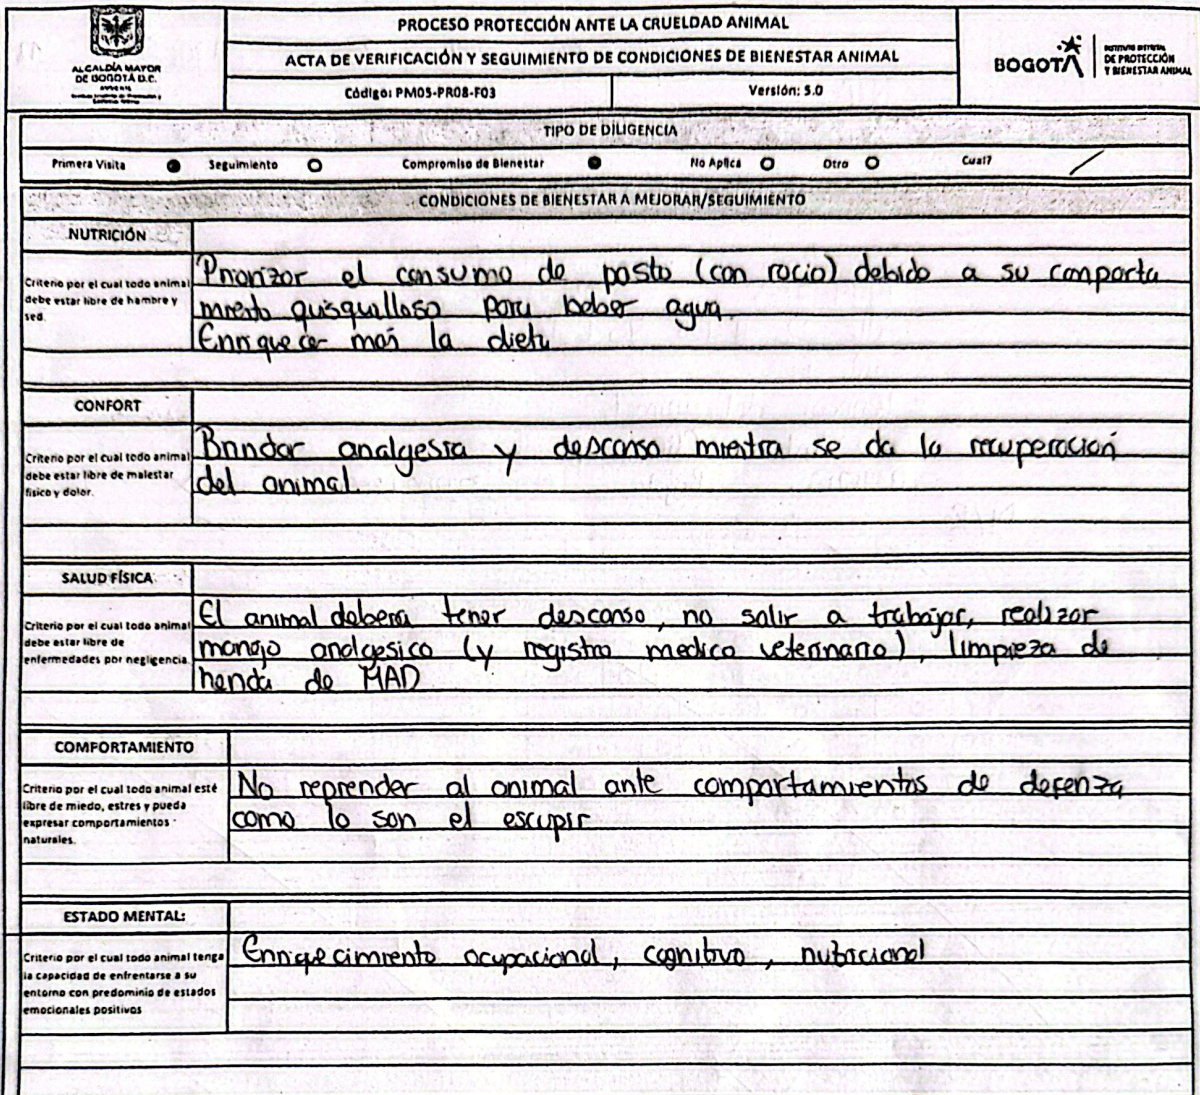 PROCESO PROTECCIÓN ANTE LA CRUELDAD ANIMAL
ACTA DE VERIFICACIÓN Y SEGUIMIENTO DE CONDICIONES DE BIENESTAR ANIMAL
Código: PM05-PR08-F03
Versión: 5.0
ALCALDÍA MAYOR
DE BOGOTÁ D.C.
BOGOTÁ
INSTITUTO DISTRITAL
DE PROTECCIÓN
Y BIENESTAR ANIMAL
TIPO DE DILIGENCIA
Primera Visita Seguimiento Compromiso de Bienestar No Aplica Otro Cual?
CONDICIONES DE BIENESTAR A MEJORAR/SEGUIMIENTO
NUTRICIÓN
Criterio por el cual todo animal
debe estar libre de hambre y
sed.
Priorizar el consumo de pasto (con rocio) debido a su comporta
miento quisquilloso para beber agua.
Enriquecer mas la dieta
CONFORT
Criterio por el cual todo animal
debe estar libre de malestar
físico y dolor.
Brindar analgesia y descanso mientra se da la recuperación
del animal.
SALUD FÍSICA
Criterio por el cual todo animal
debe estar libre de
enfermedades por negligencia.
El animal debera tener descanso, no salir a trabajar, realizar
manejo analgesico (y registro medico veterinario), limpieza de
herida de MAD
COMPORTAMIENTO
Criterio por el cual todo animal esté
libre de miedo, estres y pueda
expresar comportamientos
naturales.
No reprender al animal ante comportamientos de defenza
como lo son el escupir
ESTADO MENTAL:
Criterio por el cual todo animal tenga
la capacidad de enfrentarse a su
entorno con predominio de estados
emocionales positivos
Enriquecimiento ocupacional, cognitivo, nutricional